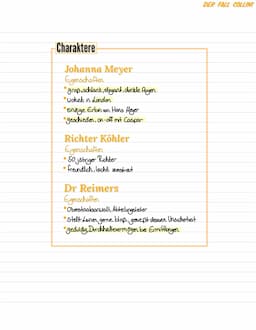 DER FALL COLLINI
Charaktere
Johanna Meyer
Eigenschaften
* groß, schlank, elegant, dunkle Augen
* wohnt in London
* einzige Erbin von Hans Meyer
* geschieden, on-off mit Caspar
Richter Köhler
Eigenschaften
* 50 jähriger Richter
* freundlich, leicht
Dr Reimers
Eigenschaften
* Oberstaatsanwalt, Abteilungsleiter
* stellt Leinen gerne bloß, genießt dessen Unsicherheit
* geduldig, Durchhaltevermögen bei Ermittlungen